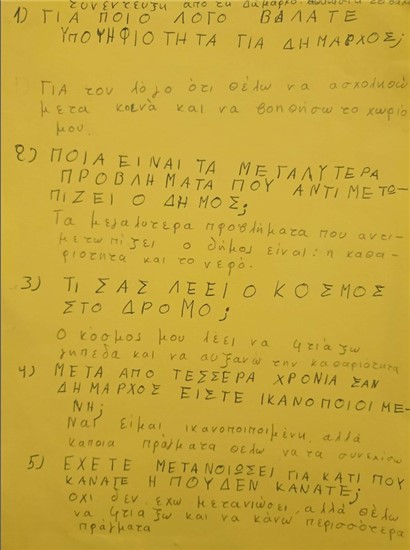 συνέντευξη από τη Δήμαρχο
1) ΓΙΑ ΠΟΙΟ ΛΟΓΟ ΒΑΛΑΤΕ
ΥΠΟΨΗΦΙΟΤΗΤΑ ΓΙΑ ΔΗΜΑΡΧΟΣ;
ΓΙΑ τον λόγο ότι θέλω να ασχοληθώ
μετα κοινὰ και να βοηθήσω το χωριό
μου.
2) ΠΟΙΑ ΕΙΝΑΙ ΤΑ ΜΕΓΑΛΥΤΕΡΑ
ΠΡΟΒΛΗΜΑΤΑ ΠΟΥ ΑΝΤΙΜΕΤΩ-
ΠΙΖΕΙ Ο ΔΗΜΟΣ;
Τα μεγαλυτερα προβλήματα που αντι-
μετωπίζει ο δήμος είναι: η καθα-
ριοτητα και το νερό.
3) ΤΙ ΣΑΣ ΛΕΕΙ Ο ΚΟΣΜΟΣ
ΣΤΟ ΔΡΟΜΟ;
Ο κόσμος μου λέει να φτιάξω
γηπεδα και να αυξανω την καθαριοτητα
4) ΜΕΤΑ ΑΠΟ ΤΕΣΣΕΡΑ ΧΡΟΝΙΑ ΣΑΝ
ΔΗΜΑΡΧΟΣ ΕΙΣΤΕ ΙΚΑΝΟΠΟΙΟΙ ΜΕ-
ΝΗ;
Ναι είμαι ικανοποιημένη, αλλά
καποια πράγματα θέλω να τα συνεχίσω
5) ΕΧΕΤΕ ΜΕΤΑΝΟΙΩΣΕΙ ΓΙΑ ΚΑΤΙ ΠΟΥ
ΚΑΝΑΤΕ Η ΠΟΥ ΔΕΝ ΚΑΝΑΤΕ;
Οχι δεν έχω μετανιώσει, αλλά θέλω
να φτιάξω και να κάνω περισσότερα
πράγματα